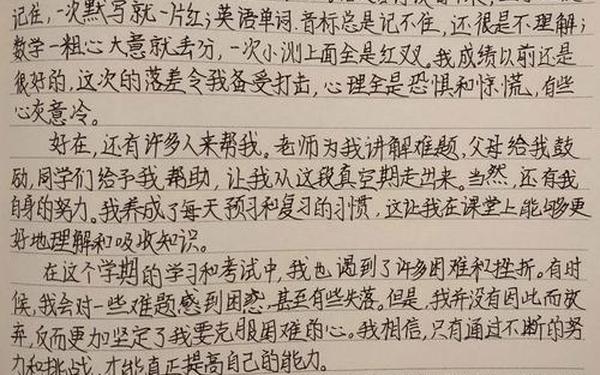 记住,一次默写就一片红;英语单词.音标总是记不住,还很是不理解;
数学一粗心大意就丢分,一次小测上面全是红叉。我成绩以前还是
很好的,这次的落差令我备受打击,心理全是恐惧和惊慌,有些
心灰意冷。
好在,还有许多人来帮我。老师为我讲解难题,父母给我鼓
励,同学们给予我帮助,让我从这段真空期走出来。当然,还有我
自身的努力。我养成了每天预习和复习的习惯,这让我在课堂上能够更
好地理解和吸收知识。
在这个学期的学习和考试中,我也遇到了许多困难和挫折。有时
候,我会对一些难题感到困惑,甚至有些失落。但是,我并没有因此而放
弃,反而更加坚定了我要克服困难的心。我相信,只有通过不断的努
力和挑战,才能真正提高自己的能力。